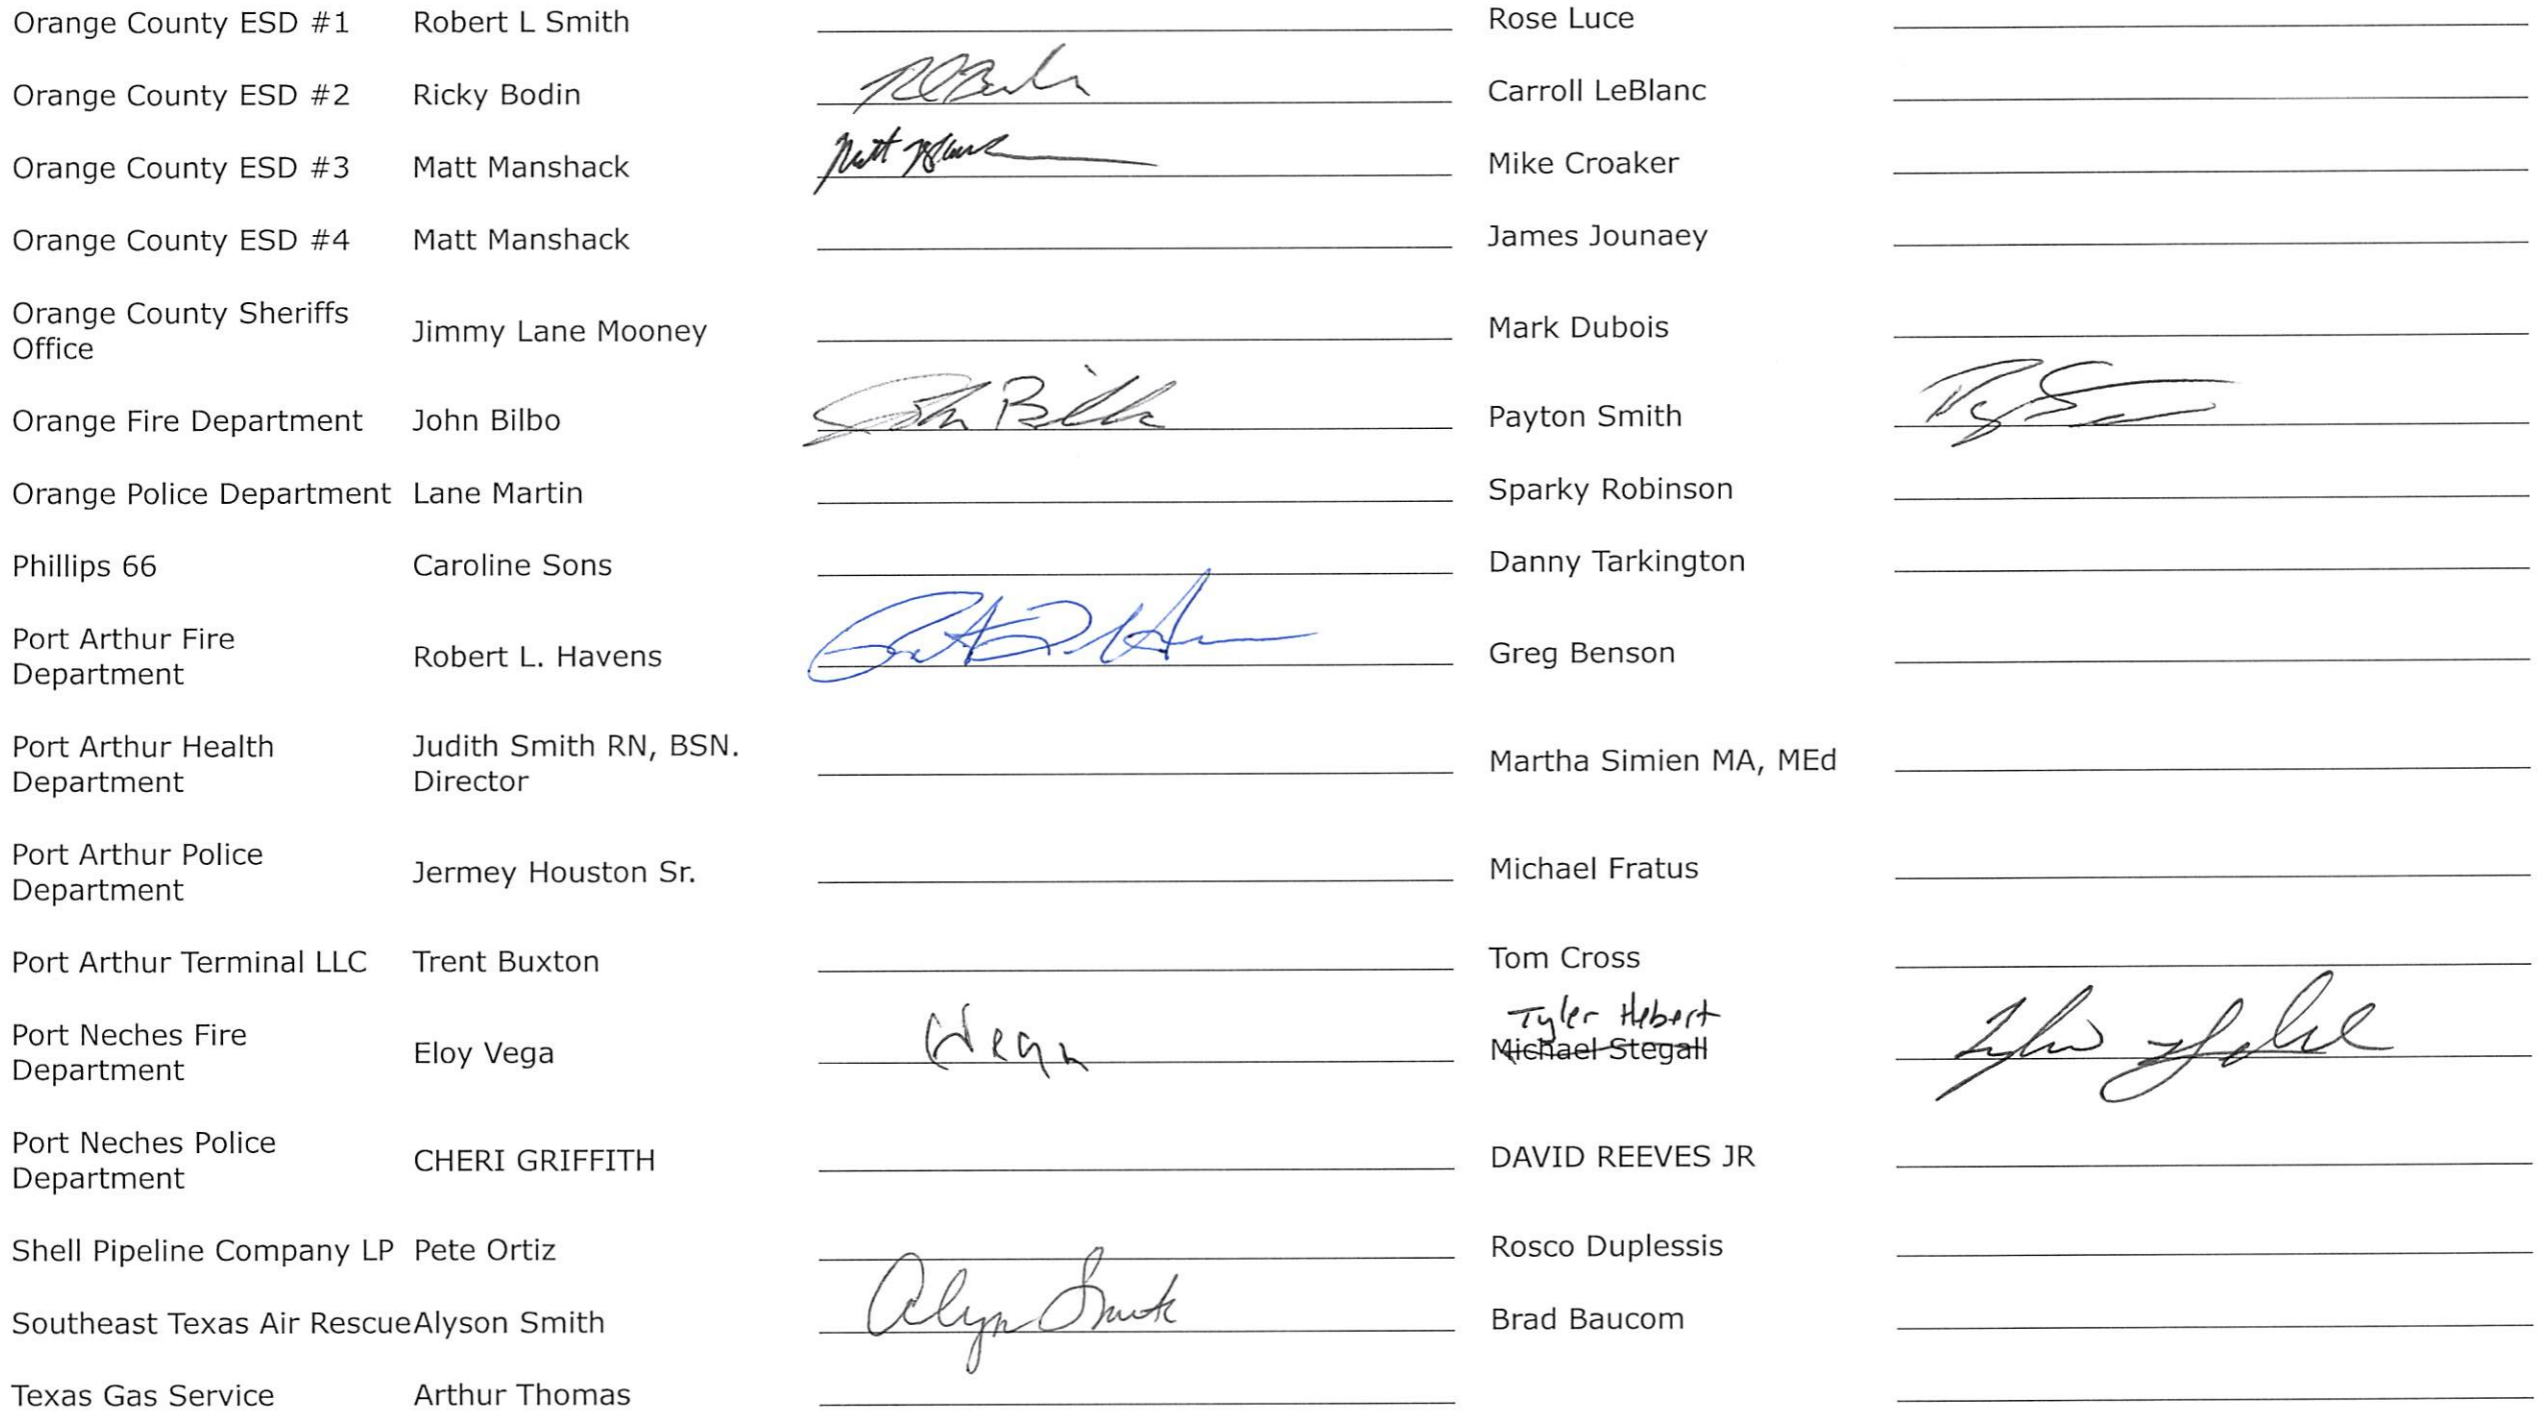 Orange County ESD #1 Robert L Smith Rose Luce
Orange County ESD #2 Ricky Bodin Carroll LeBlanc
Orange County ESD #3 Matt Manshack Matt Mike Croaker
Orange County ESD #4 Matt Manshack James Jounaey
Orange County Sheriffs
Office Jimmy Lane Mooney Mark Dubois
Orange Fire Department John Bilbo John Bilbo Payton Smith
Orange Police Department Lane Martin Sparky Robinson
Phillips 66 Caroline Sons Danny Tarkington
Port Arthur Fire
Department Robert L. Havens Greg Benson
Port Arthur Health
Department Judith Smith RN, BSN.
Director Martha Simien MA, MEd
Port Arthur Police
Department Jermey Houston Sr. Michael Fratus
Port Arthur Terminal LLC Trent Buxton Tom Cross
Tyler Hebert
Port Neches Fire
Department Eloy Vega Michael Stegall
Port Neches Police
Department CHERI GRIFFITH DAVID REEVES JR
Shell Pipeline Company LP Pete Ortiz Rosco Duplessis
Southeast Texas Air Rescue Alyson Smith Brad Baucom
Texas Gas Service Arthur Thomas